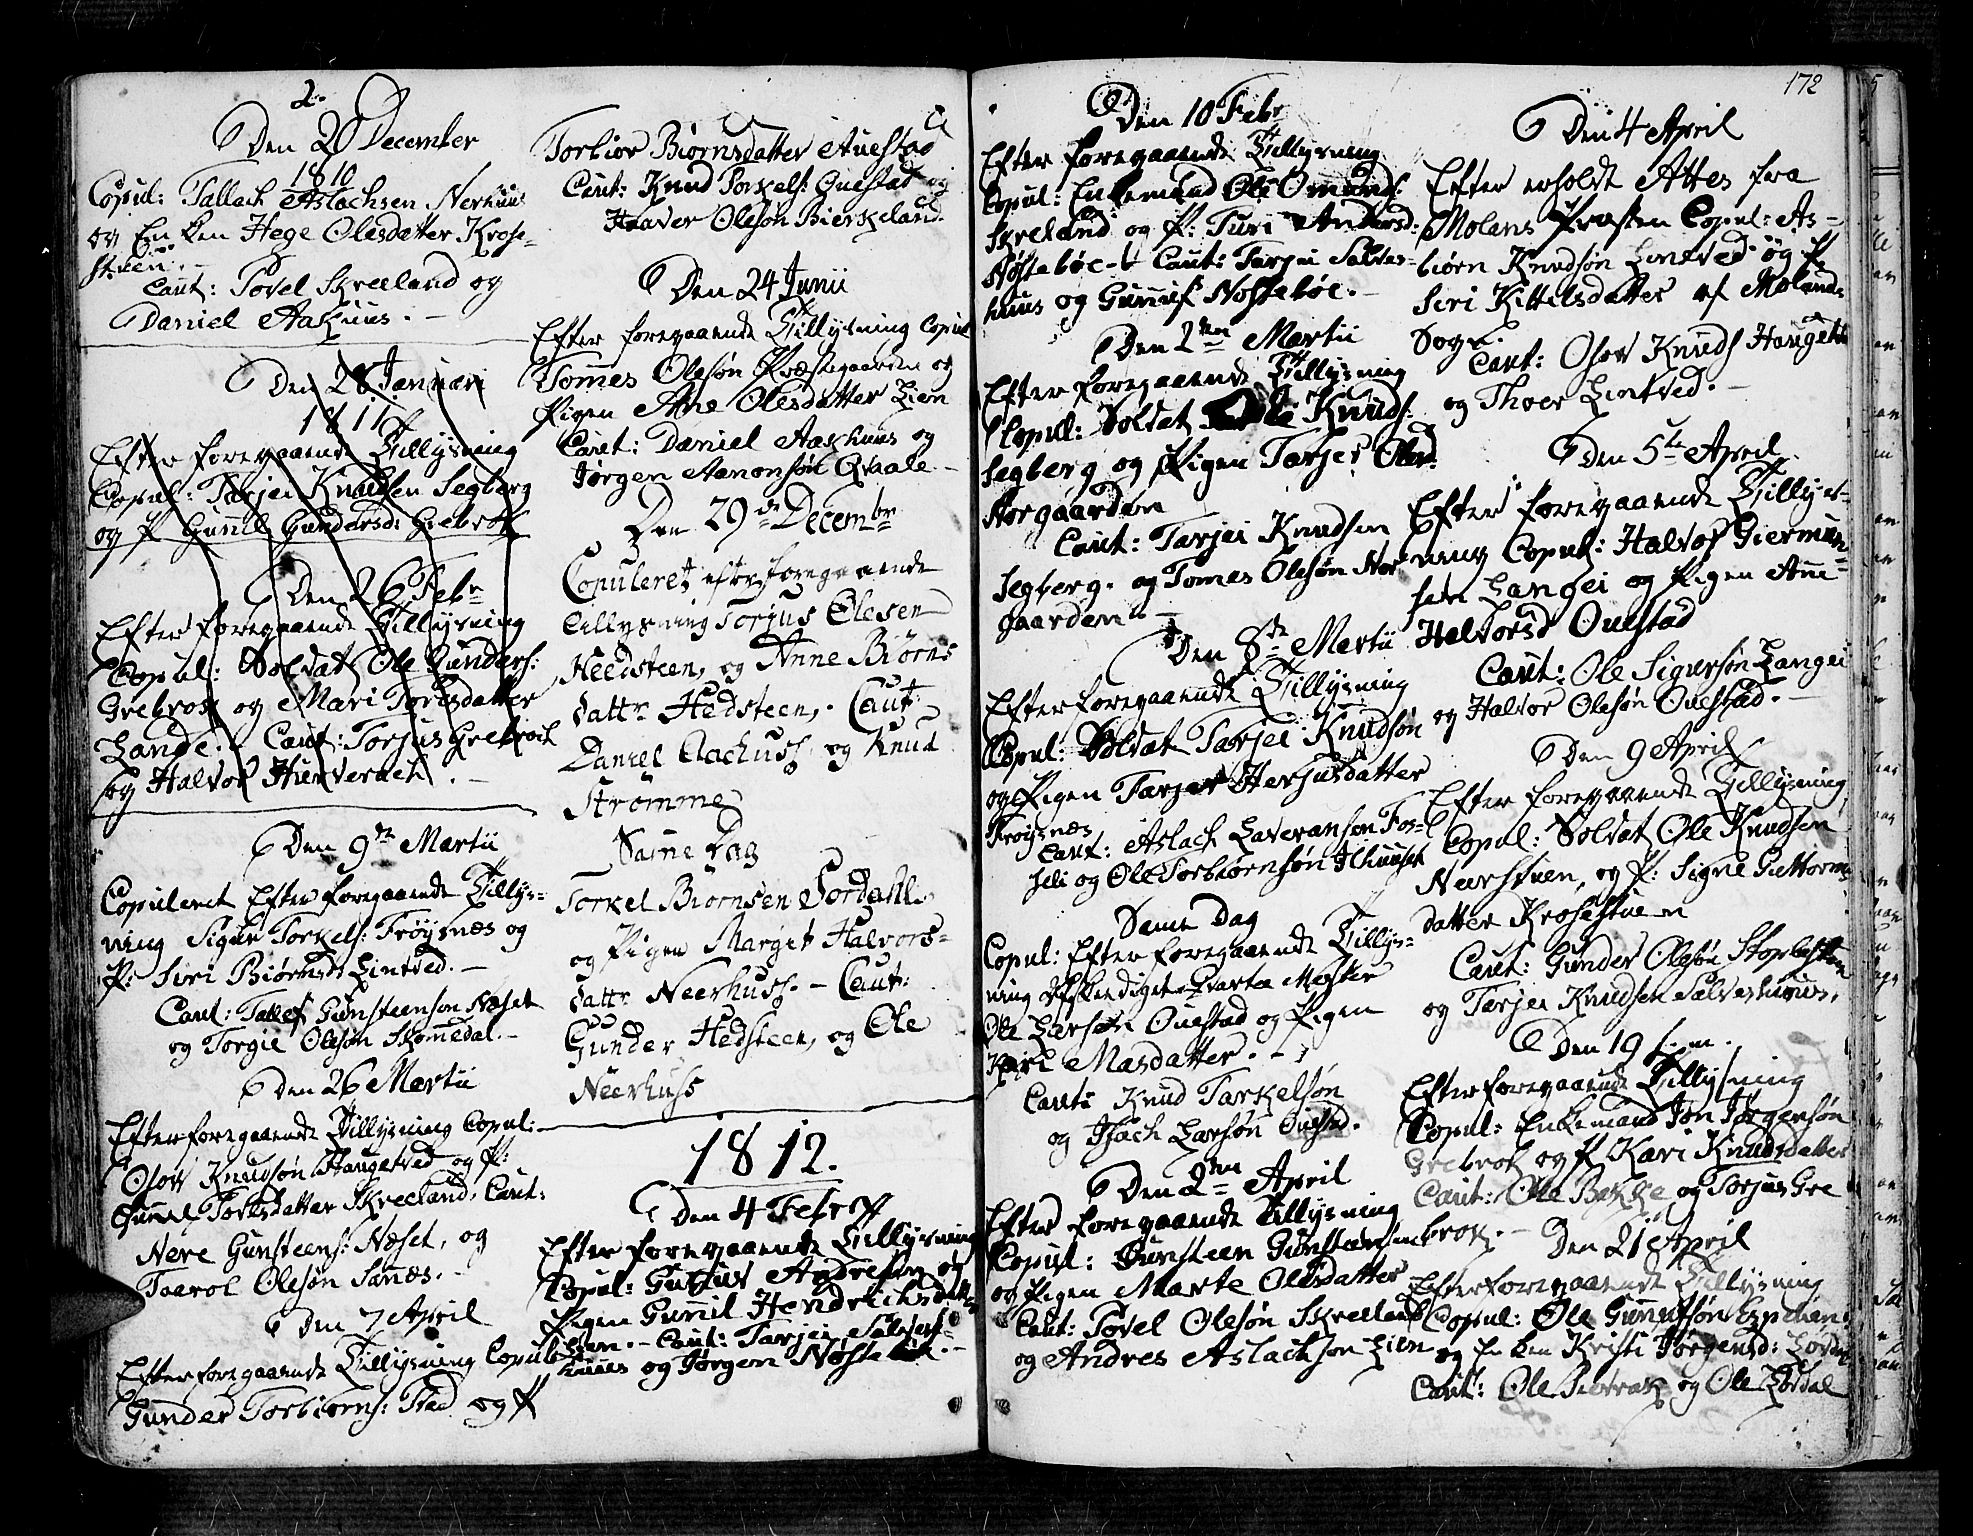 2.
Den 20 December
1810
Copul: Tallach Aslachsen Nerhuus
og Enken Hege Olesdatter Krose-
stuen.
Caut: Tovel Skreeland og
Daniel Aakuus. -
Den 28 Januari
1811
Efter foregaaende Tillysning
Copul: Tarjei Knudsen Segberg
og P Gunil Gundersd: Grebrok
Den 26 Febr
Efter foregaaende Tillysning
Copul: Soldat Ole Gunders:
Grebrok og Mari Torisdatter
Lande. Caut: Torjus Grebrok
og Halvor
Den 9de Martii
Copuleret Efter foregaaende Tillys-
ning Sigur Torkels: Frøysnæs og
P: Siri Biørnsd Lintved. -
Caut: Tallef Gunsteenson Næset
og Torgie Olesøn Skomedal. -
Den 26 Martii
Efter foregaaende Tillysning Copul:
Osov Knudsøn Haugetved og P:
Gunnil Torisdatter Skreeland. Caut:
Nere Gunsteens: Næset, og
Taarol Olesøn Sanæs. -
Den 7 April
Efter foregaaende Tillysning Copul:
Gunder Torbiørns: Stad og P
Torbior Biørnsdatter Auestad
Caut: Knud Torkels: Ouestad og
Haaver Olesøn Bierkeland.
Den 24 Junii
Efter foregaaende Tillysning Copul
Tomes Olesøn Præstegaarden og
Pigen Ane Olesdatter Lien
Caut: Daniel Aakhuus og
Jørgen Aanonsøn Qvaale -
Den 29de Decembr
Copuleret efter foregaaende
Tillysning Torjus Olesen
Heedsteen, og Anne Biørns
dattr Hedsteen,. Caut:
Daniel Aachuss, og Knud
Strømme
Samme Dag
Torkel Biørnsen Jordahl
og Pigen Margit Halvors-
dattr Neerhuss. - Caut:
Gunder Hedsteen, og Ole
Neerhuss
1812.
Den 4 Febr
Efter foregaaende Tillysning
Copul: Andresen og
Pigen Gunnil Hendrichsdatter
Lien. - Caut: Tarjei Salves-
huus og Jørgen Nøstebøe. -
Den 10 Febr
Efter foregaaende Tillysning
Copul: Enkemand Ole Omunds:
Skreland og P: Turi Andersd:
Nøstebøe - Caut: Tarjei Salves-
huus og Gunnuf Nøstebøe. -
Den 2den Martii
Efter foregaaende Tillysning
Copul: Soldat Ole Knuds:
Segberg og Pigen Tarjer Olesd:
Norgaarden
Caut: Tarjei Knudsen
Segberg. og Tomes Olesøn Nor
gaarden -
Den 8de Martii
Efter foregaaende Tillysning
Copul: Soldat Tarjei Knudsøn
og Pigen Tarjer Herjusdatter
Frøysnæs
Caut: Aslach Laveransøn Fos-
seli og Ole Torbiørnsøn
Same Dag
Copul: Efter foregaaende Tillys-
ning
Ole Larsøn Ouestad og Pigen
Kari Masdatter. -
Caut: Knud Tarkelsøn
og Isach Larsøn Ouestad.
Den 2den April
Efter foregaaende Tillysning
Copul: Gunsteen Gunstensøn
og Pigen Marte Olesdatter
Caut: Tovel Olesøn Skreeland
og Andres Aslachsøn Lien
172
Den 4 April
Efter erholdt Attes fra
Molans Præsten Copul: As-
biørn Knudsøn Lintved og P
Siri Kittelsdatter af Molands
Sogn.
Caut: Osov Knuds Haugetv
og Thoer Lintved. -
Den 5te April
Efter foregaaende Tillys-
ning Copul: Halvor Giermun-
sen Langei og Pigen Ane
Halvorsd Ouestad
Caut: Ole Sigursøn Langei
og Halvor Olesøn Ouestad. -
Den 9 April
Efter foregaaende Tillysning
Copul: Soldat Ole Knudsen
Neerstuen, og P: Signe Guttorms
datter Krosestuen
Caut: Gunder Olesøn
og Tarjei Knudsen Salveshuus.
Den 19 s. m.
Efter foregaaende Tillysning
Copul: Enkemand Jon Jørgensøn
Grebrok og P Kari Knudsdatter
Caut: Ole Bakke og Torjus Gre
brok. -
Den 21 April
Efter foregaaende Tillysning
Copul: Ole Gunnufsøn
og Enken Kristi Jørgensd:
Caut: Ole og Ole